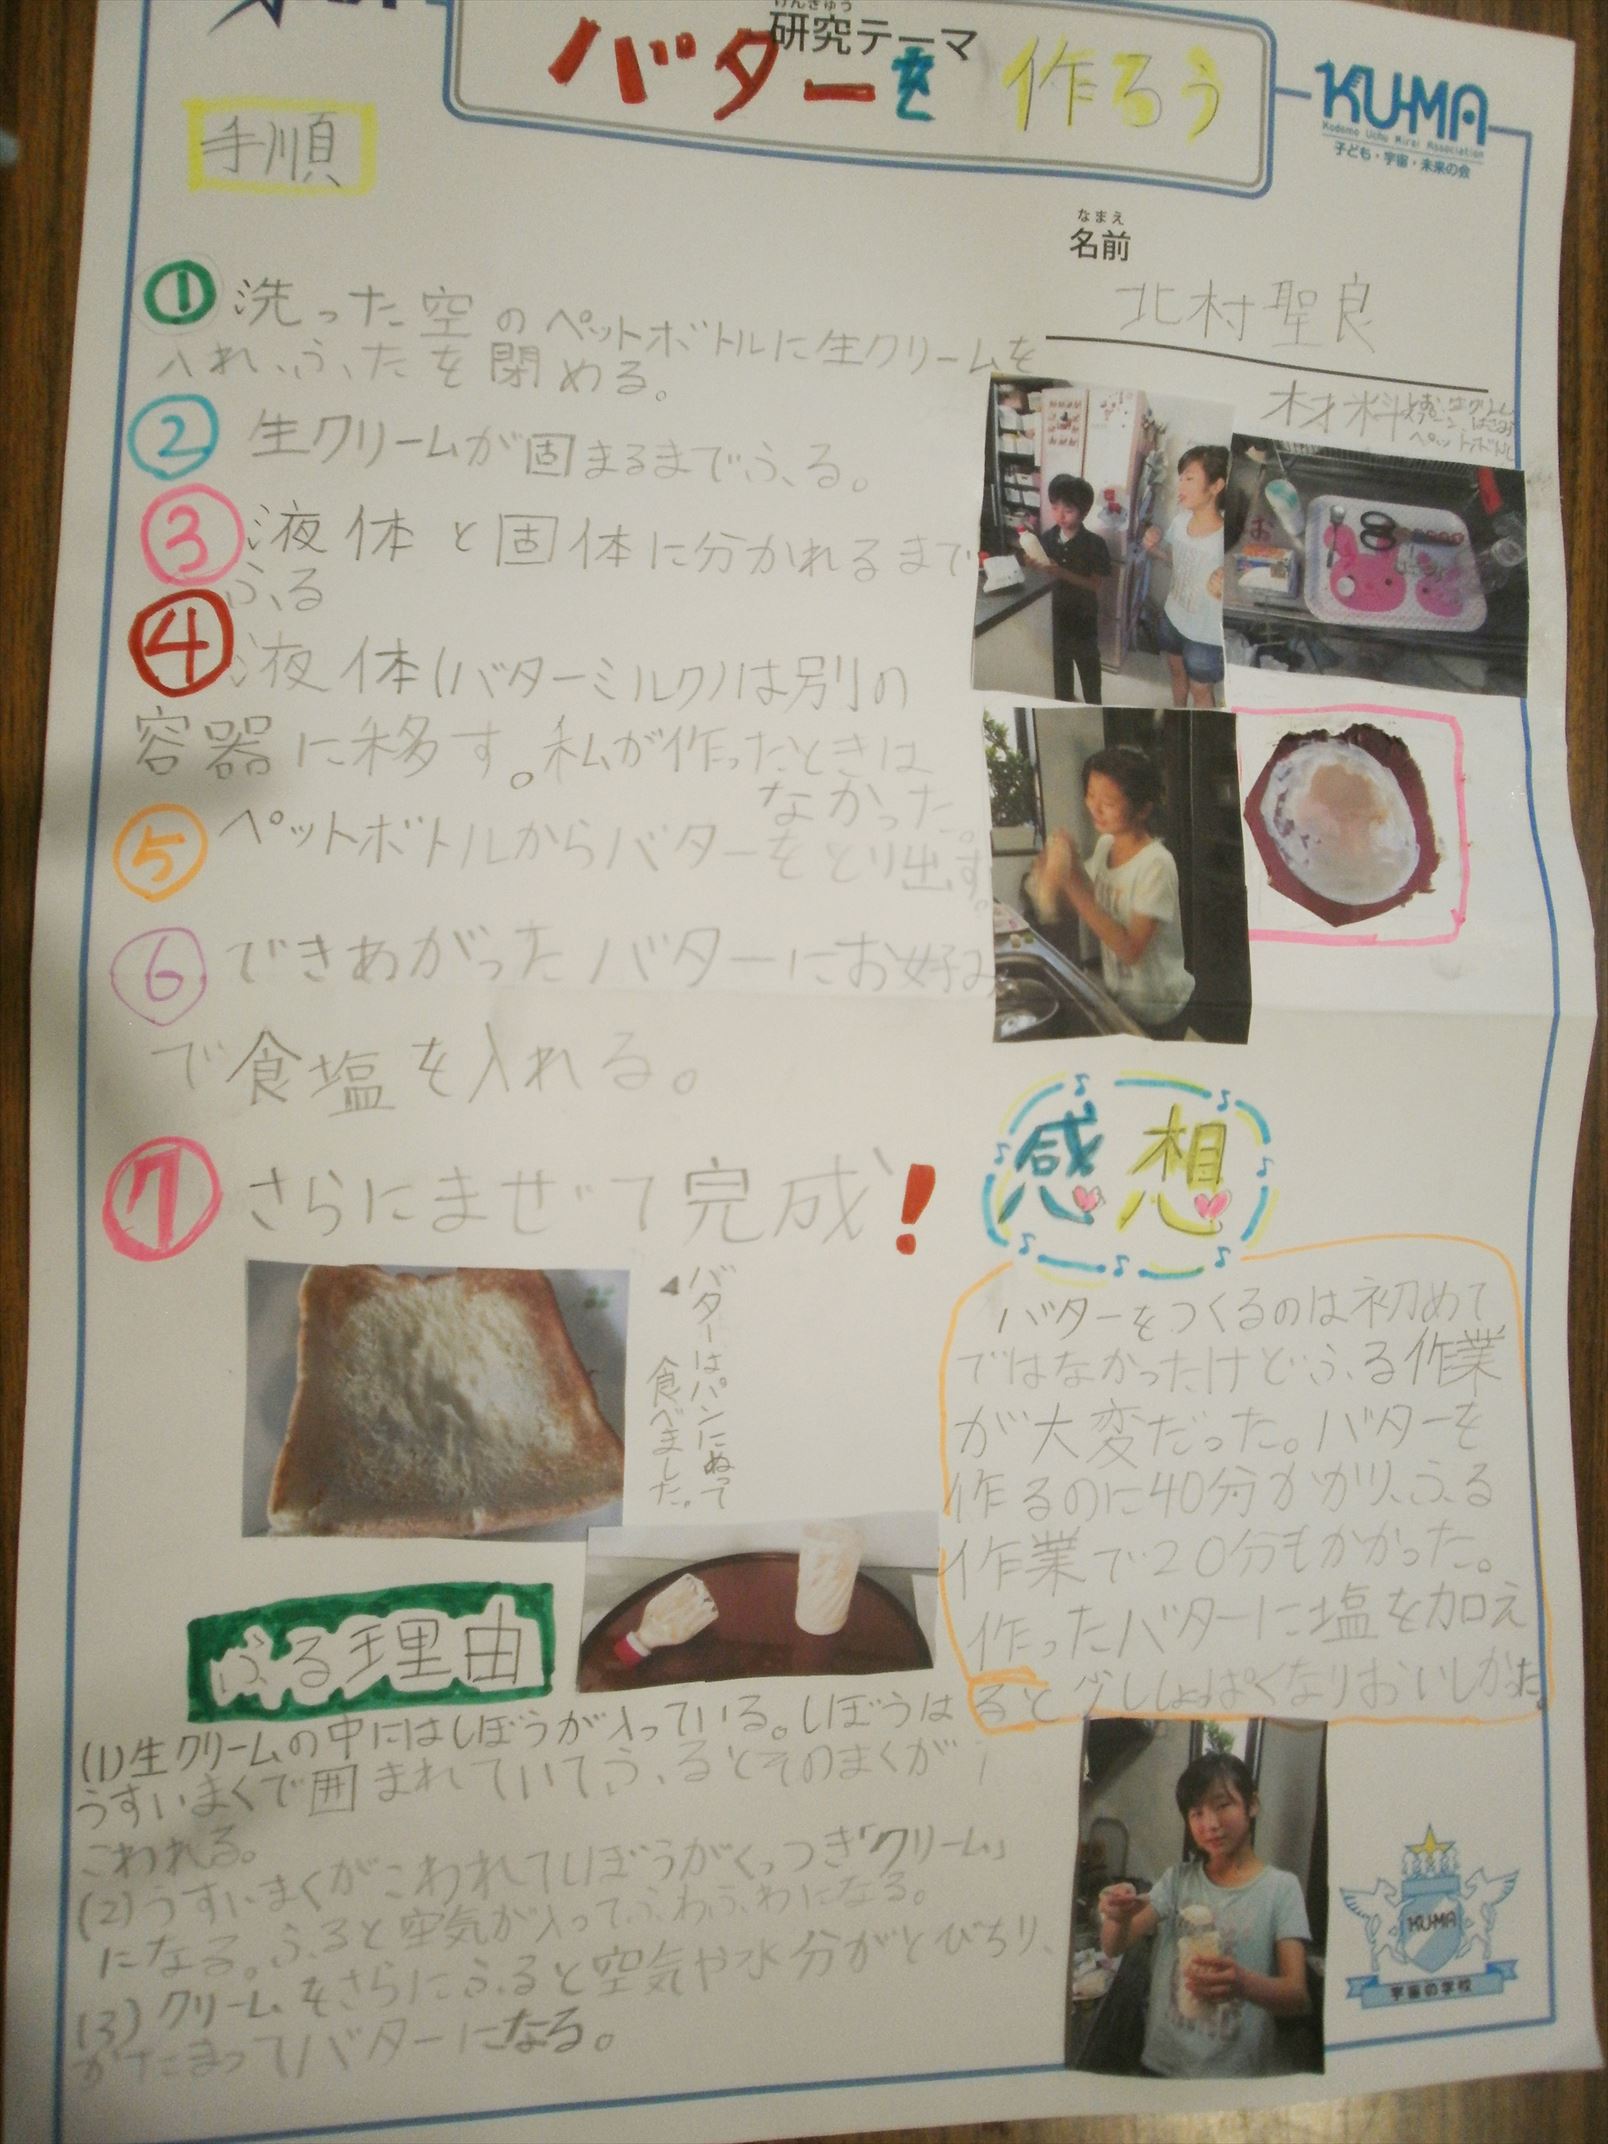 けんきゅう
研究テーマ
バターを作ろう
KU-MA
Kodomo Uchu Mirai Association
子ども・宇宙・未来の会
手順
なまえ
名前
北村聖良
①洗った空のペットボトルに生クリームを
入れ、ふたを閉める。
②生クリームが固まるまでふる。
③液体と固体に分かれるまで
ふる
④液体(バターミルク)は別の
容器に移す。私が作ったときは
なかった。
⑤ペットボトルからバターをとり出す。
⑥できあがったバターにお好み
で食塩を入れる。
⑦さらにまぜて完成!
材料
生クリーム
はさみ
ペットボトル
お
バターはパンにぬって
食べました。
感想
バターをつくるのは初めて
ではなかったけどふる作業
が大変だった。バターを
作るのに40分かかり、ふる
作業で20分もかかった。
作ったバターに塩を加え
ると少ししょっぱくなりおいしかった。
ふる理由
(1)生クリームの中にはしぼうが入っている。しぼうは
うすいまくで囲まれていてふるとそのまくが
こわれる。
(2)うすいまくがこわれてしぼうがくっつき「クリーム」
になる。ふると空気が入ってふわふわになる。
(3)クリームをさらにふると空気や水分がとびちり、
かたまってバターになる。
KU-MA
宇宙の学校